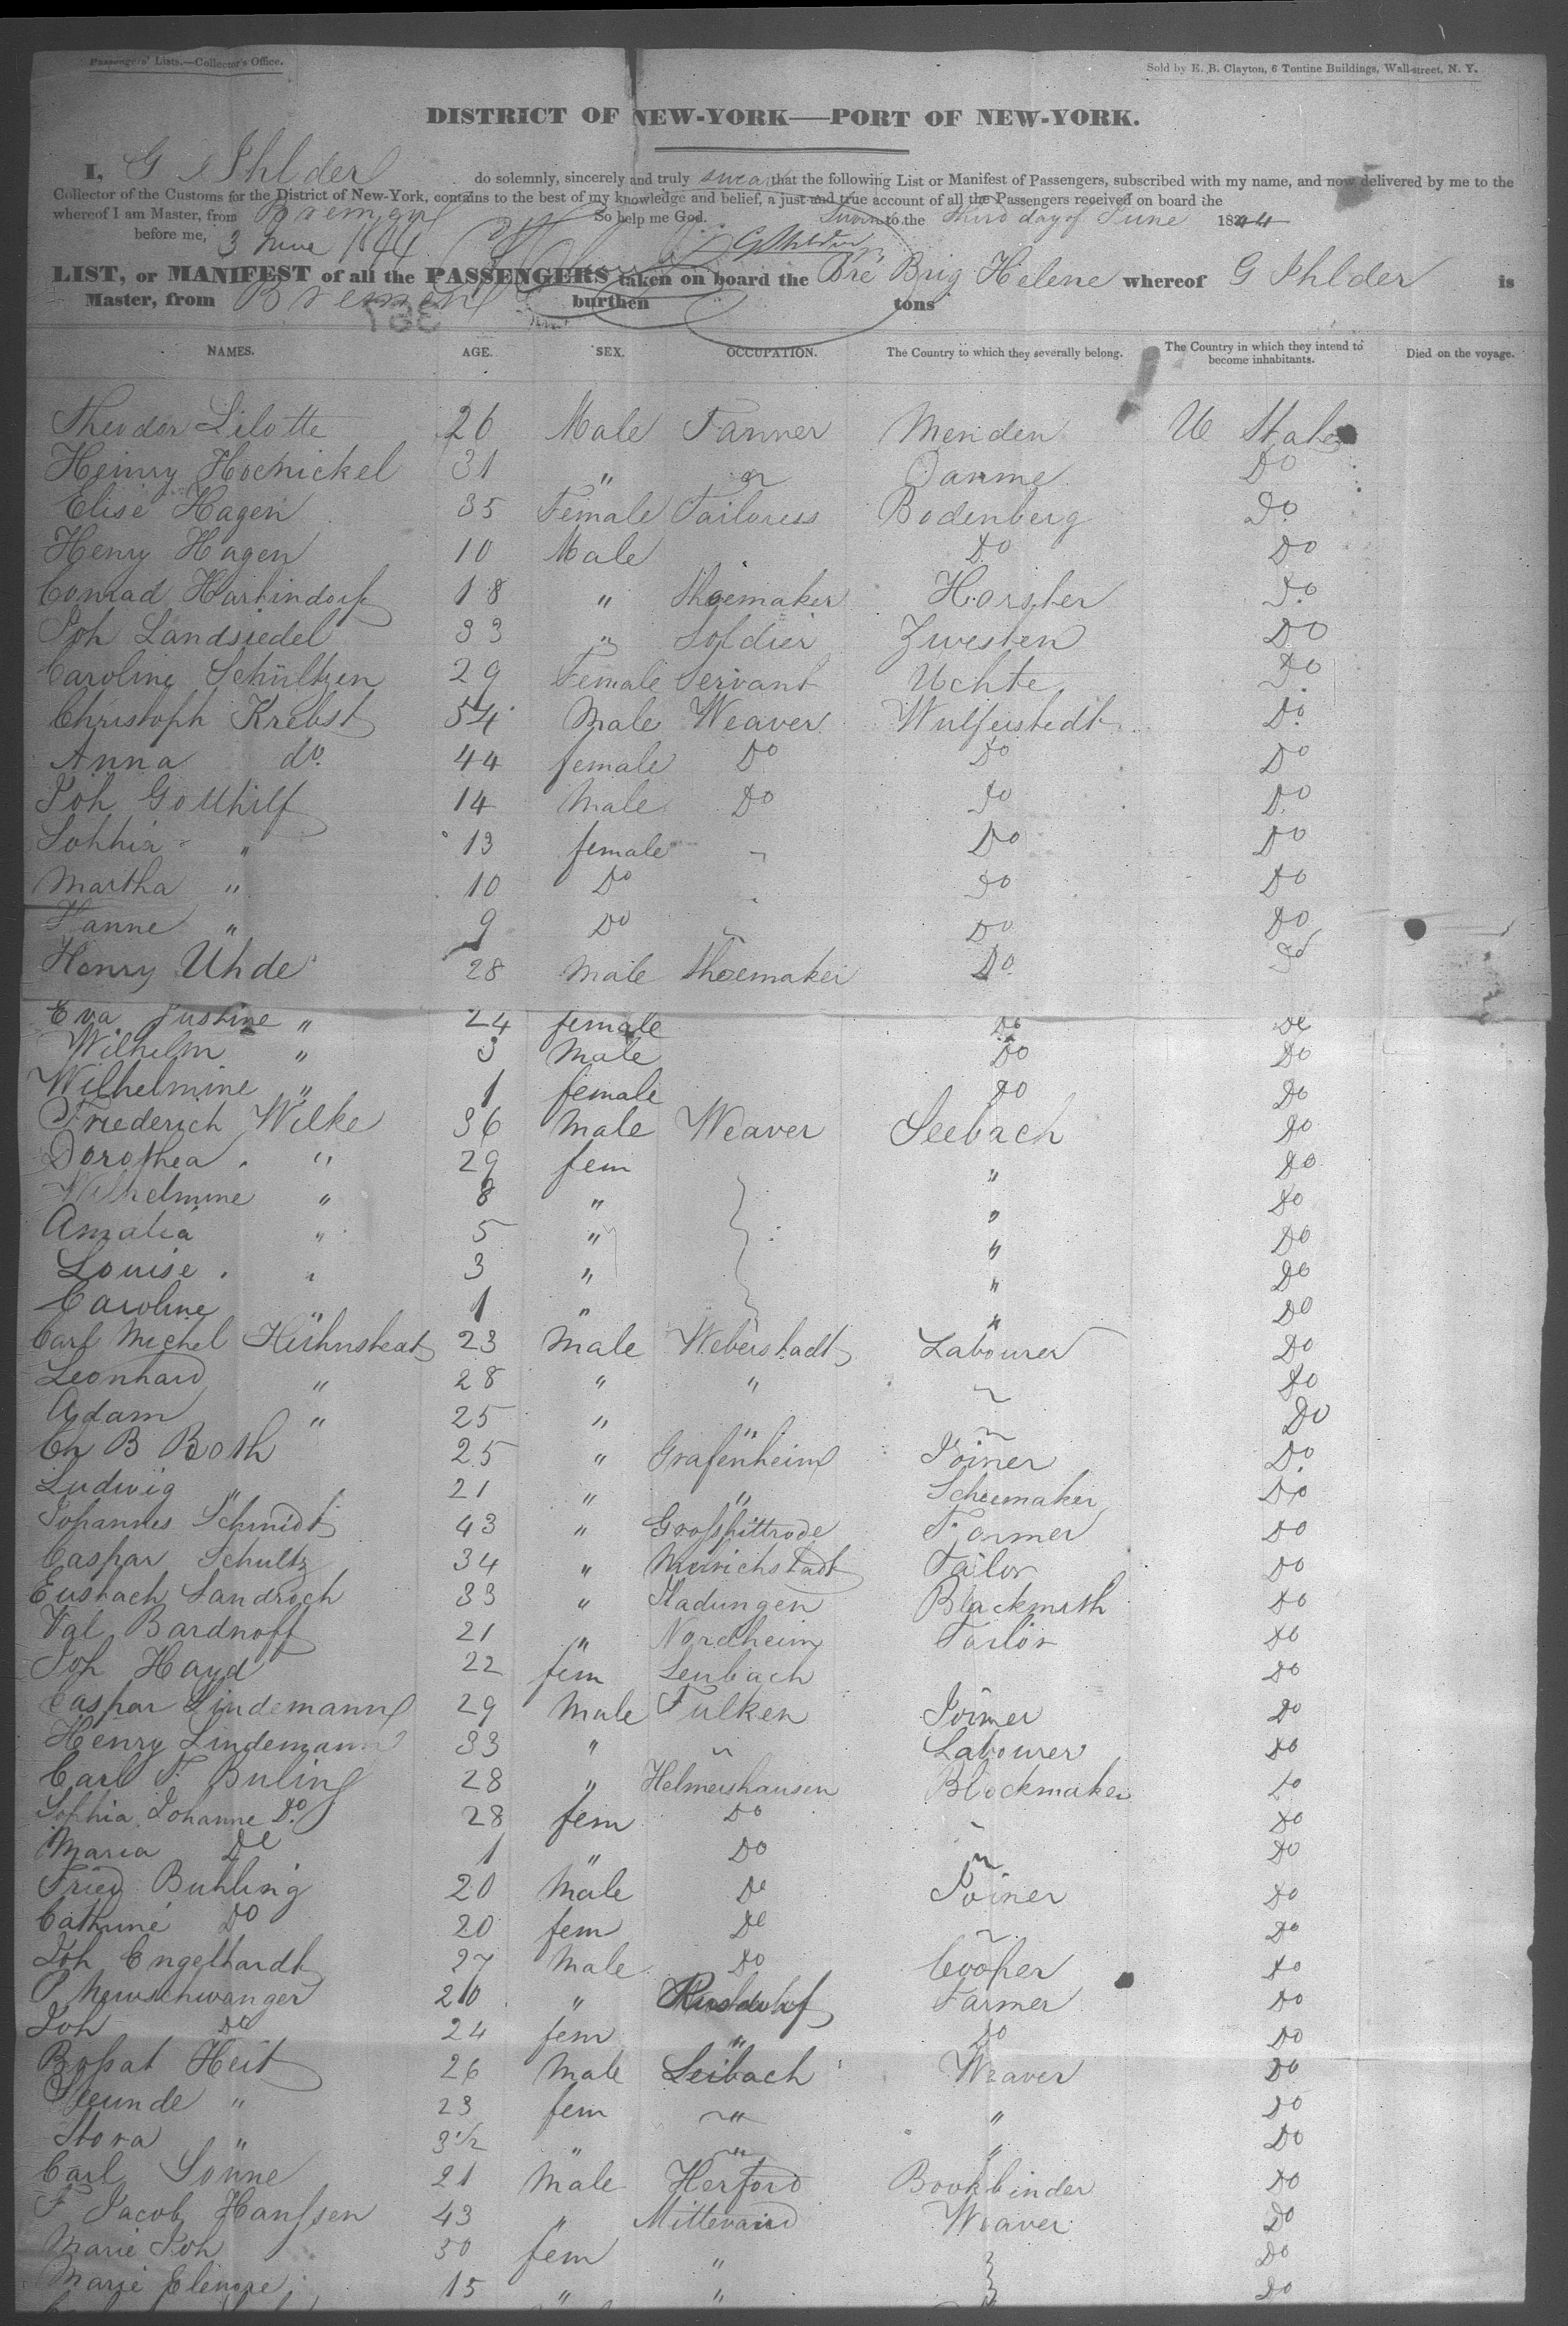 Passengers' Lists.—Collector's Office.
Sold by E. B. Clayton, 6 Tontine Buildings, Wall-street, N. Y.
DISTRICT OF NEW-YORK—PORT OF NEW-YORK.
I, G Ihlder do solemnly, sincerely and truly swear that the following List or Manifest of Passengers, subscribed with my name, and now delivered by me to the
Collector of the Customs for the District of New-York, contains to the best of my knowledge and belief, a just and true account of all the Passengers received on board the
whereof I am Master, from Bremen So help me God. Sworn to the third day of June 1844
before me, 3 June 1844 G Ihlder
LIST, or MANIFEST of all the PASSENGERS taken on board the Bre Brig Helene whereof G Ihlder is
Master, from Bremen burthen tons
NAMES. AGE. SEX. OCCUPATION. The Country to which they severally belong. The Country in which they intend to become inhabitants. Died on the voyage.
Theodor Lilotte 26 Male Tanner Menden U States
Heinry Hoenickel 31 " " Damme Do
Elise Hagen 35 Female Tailoress Bodenberg Do
Henry Hagen 10 Male Do Do
Conrad Hartindorf 18 " Shoemaker Horster Do
Joh Landsiedel 33 " Soldier Zwesten Do
Caroline Schültzen 29 Female Servant Uchte Do
Christoph Krebst 54 Male Weaver Wulferstedt Do
Anna do 44 female Do Do Do
Joh Gotthilf 14 Male Do Do Do
Sophia " 13 female Do Do
Martha " 10 Do Do Do
Hanne " 9 Do Do Do
Henry Uhde 28 Male Shoemaker Do Do
Eva Justine " 24 female Do Do
Wilhelm " 3 Male Do Do
Wilhelmine " 1 female Do Do
Friederich Wilke 36 Male Weaver Seebach Do
Dorothea " 29 fem " Do
Wilhelmine " 8 " " Do
Amalia " 5 " " Do
Louise " 3 " " Do
Caroline " 1 " " Do
Carl Michel Hühnsteat 23 Male Weberstadt Labourer Do
Leonhard " 28 " " Do
Adam " 25 " " Do
Ch B Both 25 " Grafenheim Joiner Do
Ludwig " 21 " " Schoemaker Do
Johannes Schmidt 43 " Farmer Do
Caspar Schultz 34 " Tailor Do
Eustach Landroch 33 " Fladungen Blacksmith Do
Val Bardnoff 21 " Nordheim Tailor Do
Joh Hayd 22 fem Leubach Do
Caspar Lindemann 29 Male Fulken Joiner Do
Henry Lindemann 33 " Labourer Do
Carl F. Buling 28 " Helmershausen Blockmaker Do
Sophia Johanne Do 28 fem Do Do
Maria Do 1 " Do Do
Fried Buhling 20 Male Do Joiner Do
Cathrine Do 20 fem Do Do
Joh Engelhardt 27 Male Do Cooper Do
P Newschwanger 20 " Farmer Do
Joh Do 24 fem " Do Do
Heit 26 Male Leibach Weaver Do
" 23 fem " " Do
" 3 1/2 " " " Do
Carl Sonne 21 Male Herford Bookbinder Do
F Jacob Hanssen 43 " Weaver Do
Marie Joh 50 fem " Do
Marie Elenore 15 " " Do